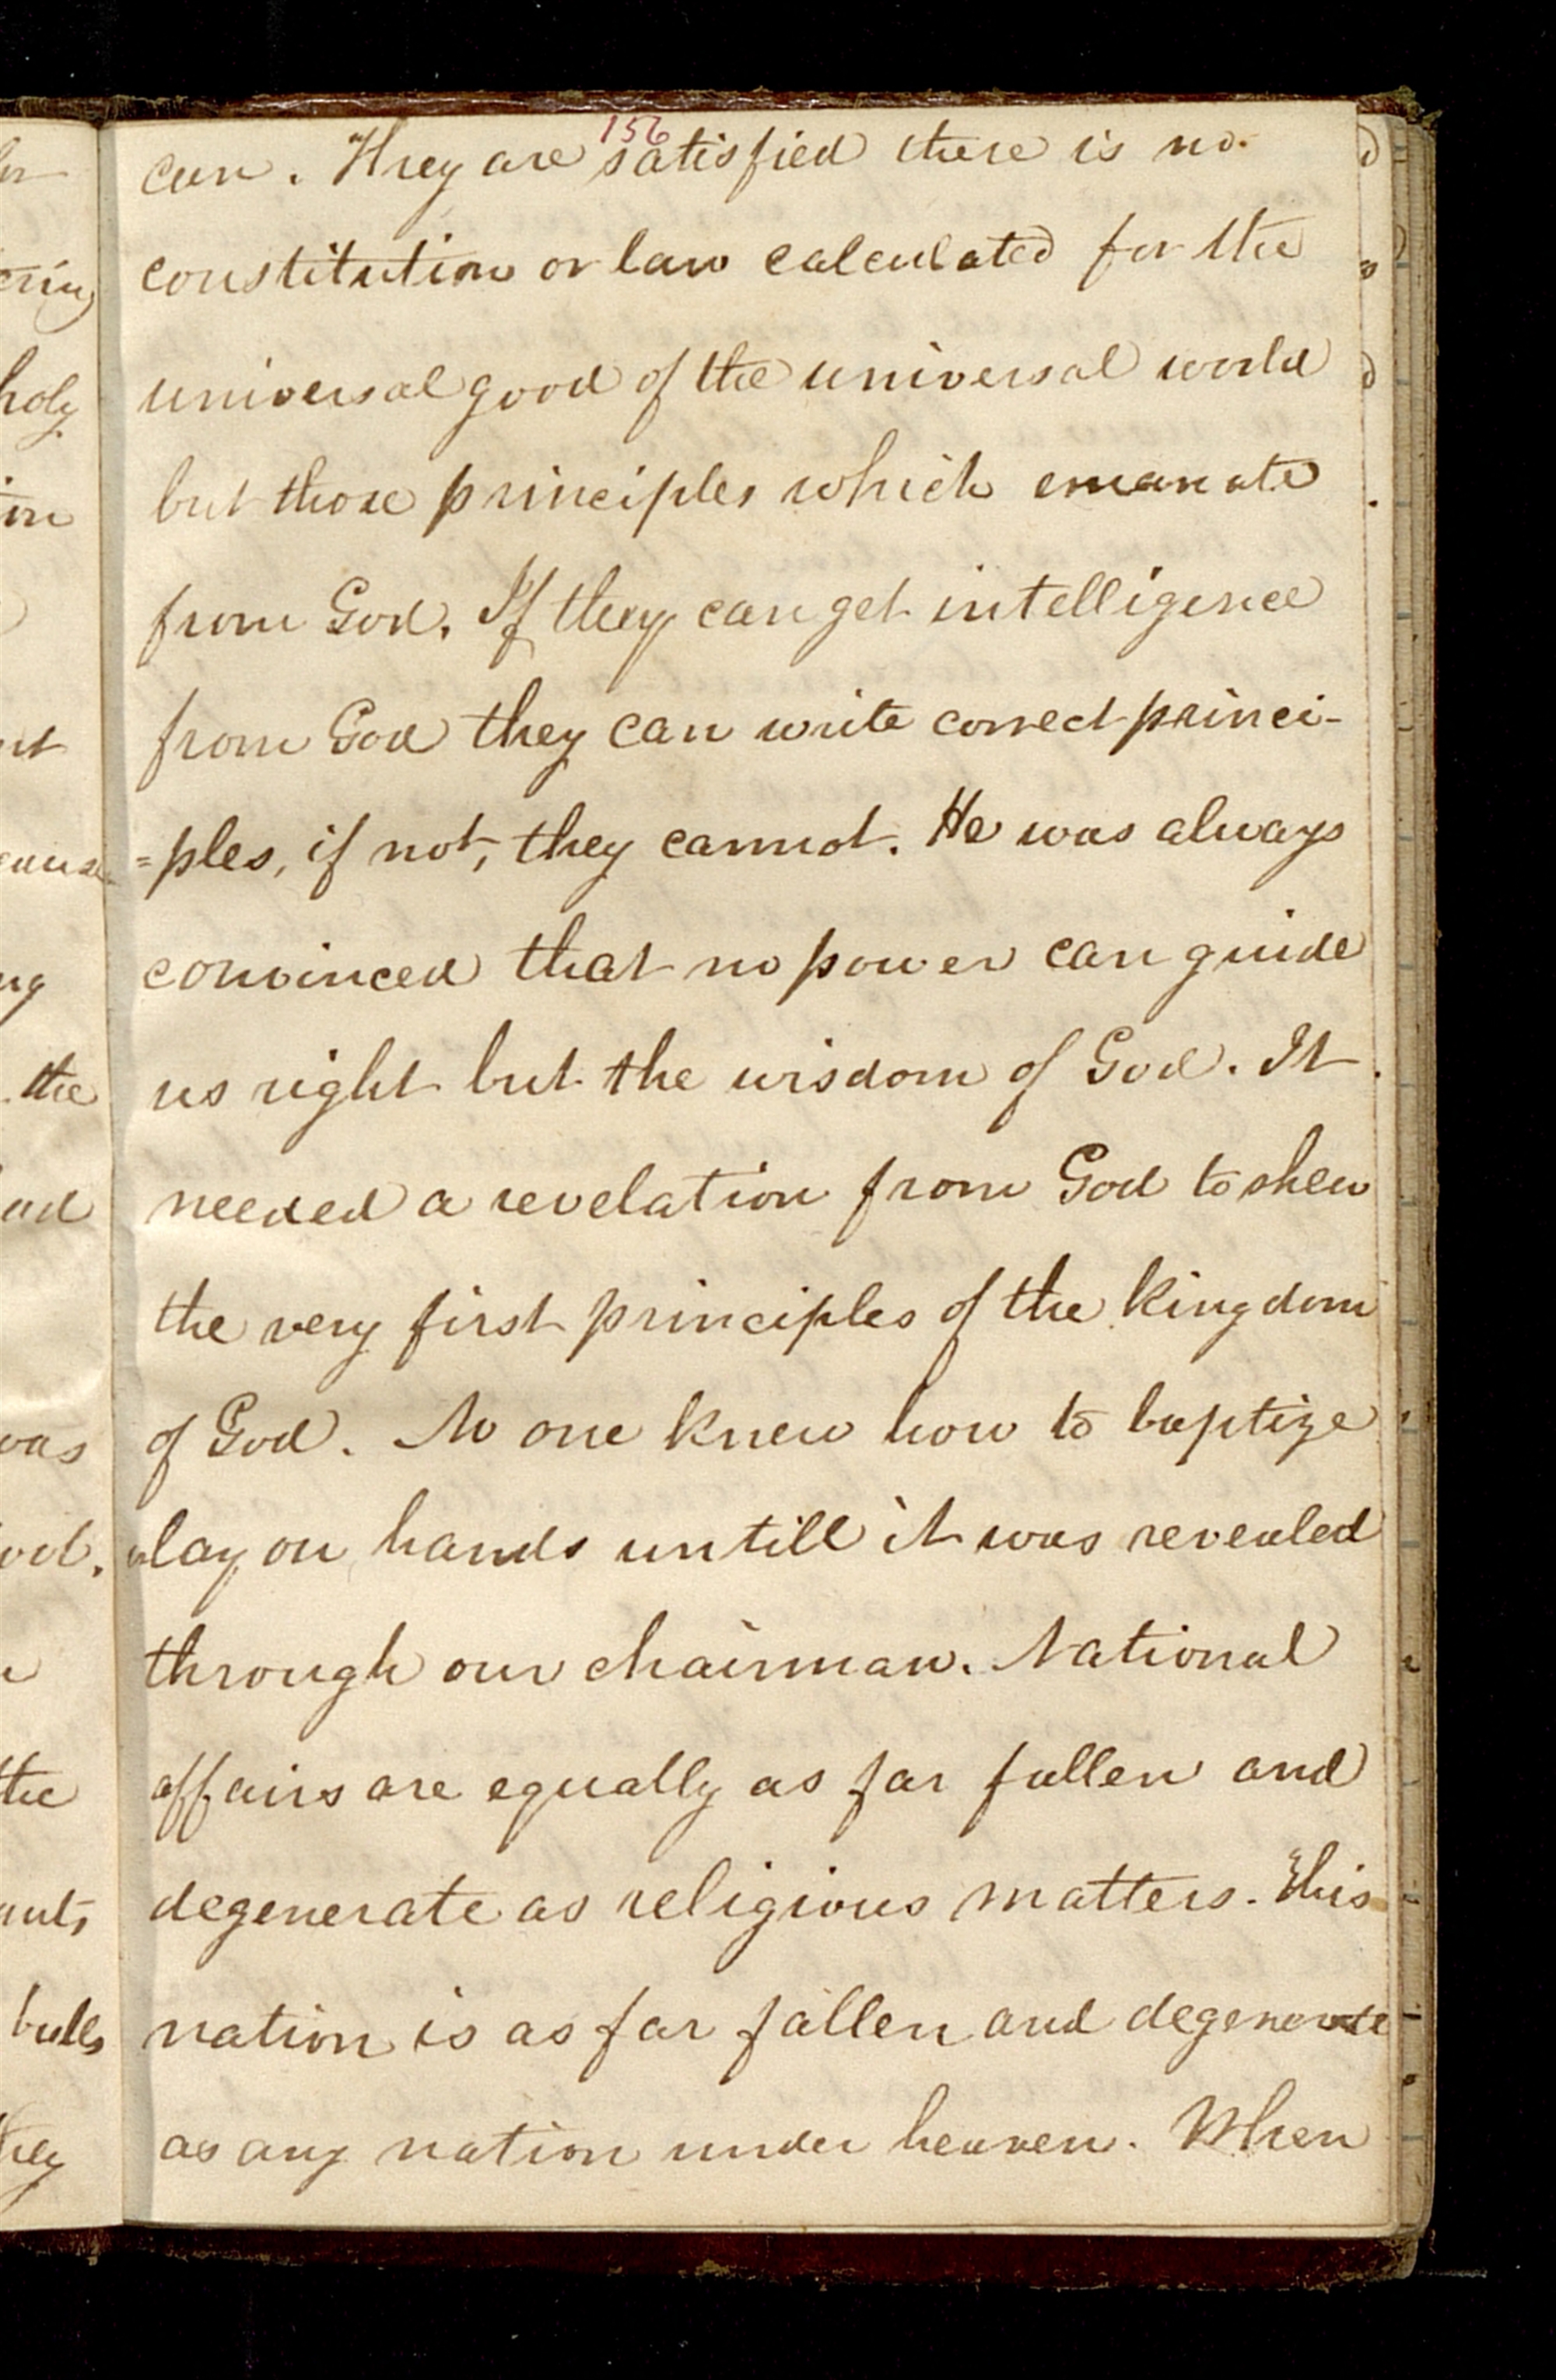 156
can. They are satisfied there is no
constitution or law calculated for the
universal good of the universal world
but those principles which emanate
from God. If they can get intelligence
from God they can write correct princi-
=ples, if not, they cannot. He was always
convinced that no power can guide
us right but the wisdom of God. It
needed a revelation from God to shew
the very first principles of the kingdom
of God. No one knew how to baptize
lay on hands untill it was revealed
through our chairman. National
affairs are equally as far fallen and
degenerate as religious matters. This
nation is as far fallen and degenerate
as any nation under heaven. When
holy
the
was
the
bulls